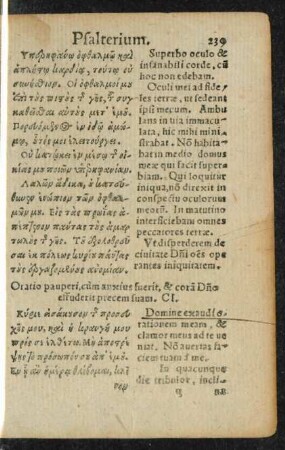 Psalterium. 239
Ὑπερηφάνῳ ὀφθαλμῷ καὶ
ἀπλήστῳ καρδίᾳ, τούτῳ οὐ
συνήσθιον. Οἱ ὀφθαλμοί μου
ἐπὶ τοὺς πιστοὺς τῆς γῆς, τοῦ συγ-
καθῆσθαι αὐτοὺς μετ' ἐμοῦ.
Πορευόμενος ἐν ὁδῷ ἀμώ-
μῳ, οὗτός μοι ἐλειτούργει.
Οὐ κατῴκει ἐν μέσῳ τῆς οἰ-
κίας μου ποιῶν ὑπερηφανίαν.
Λαλῶν ἄδικα, οὐ κατεύ-
θυνεν ἐνώπιον τῶν ὀφθαλ-
μῶν μου. Εἰς τὰς πρωΐας ἀ-
πέκτενον πάντας τοὺς ἁμαρ-
τωλοὺς τῆς γῆς. Τοῦ ἐξολοθρεῦ-
σαι ἐκ πόλεως κυρίου πάντας
τοὺς ἐργαζομένους ἀνομίαν.
Superbo oculo &
insanabili corde, cũ
hoc non edebam.
Oculi mei ad fide
les terræ, ut sedeant
ipsi mecum. Ambu
lans in uia immacu
lata, hic mihi mini
strabat. Nõ habita
bat in medio domus
meæ qui facit super
biam. Qui loquitur
iniqua, nõ direxit in
conspectu oculorum
meorũ. In matutino
interficiebam omnes
peccatores terræ.
Vt disperderem de
ciuitate Dñi oẽs ope
rantes iniquitatem.
Oratio pauperi, cùm anxius fuerit, & corã Dño
effuderit precem suam. CI.
Κύριε εἰσάκουσον τῆς προσευ-
χῆς μου, καὶ ἡ κραυγή μου
πρός σε ἐλθέτω. Μὴ ἀποστρέ-
ψῃς τὸ πρόσωπόν σου ἀπ' ἐμοῦ.
Ἐν ᾗ ἂν ἡμέρᾳ θλίβωμαι, κλῖ
νον
Domine exaudi
orationem meam, &
clamor meus ad te ue
niat. Nõ auertas fa
ciem tuam à me.
In quacunque
die tribulor, incli-
na